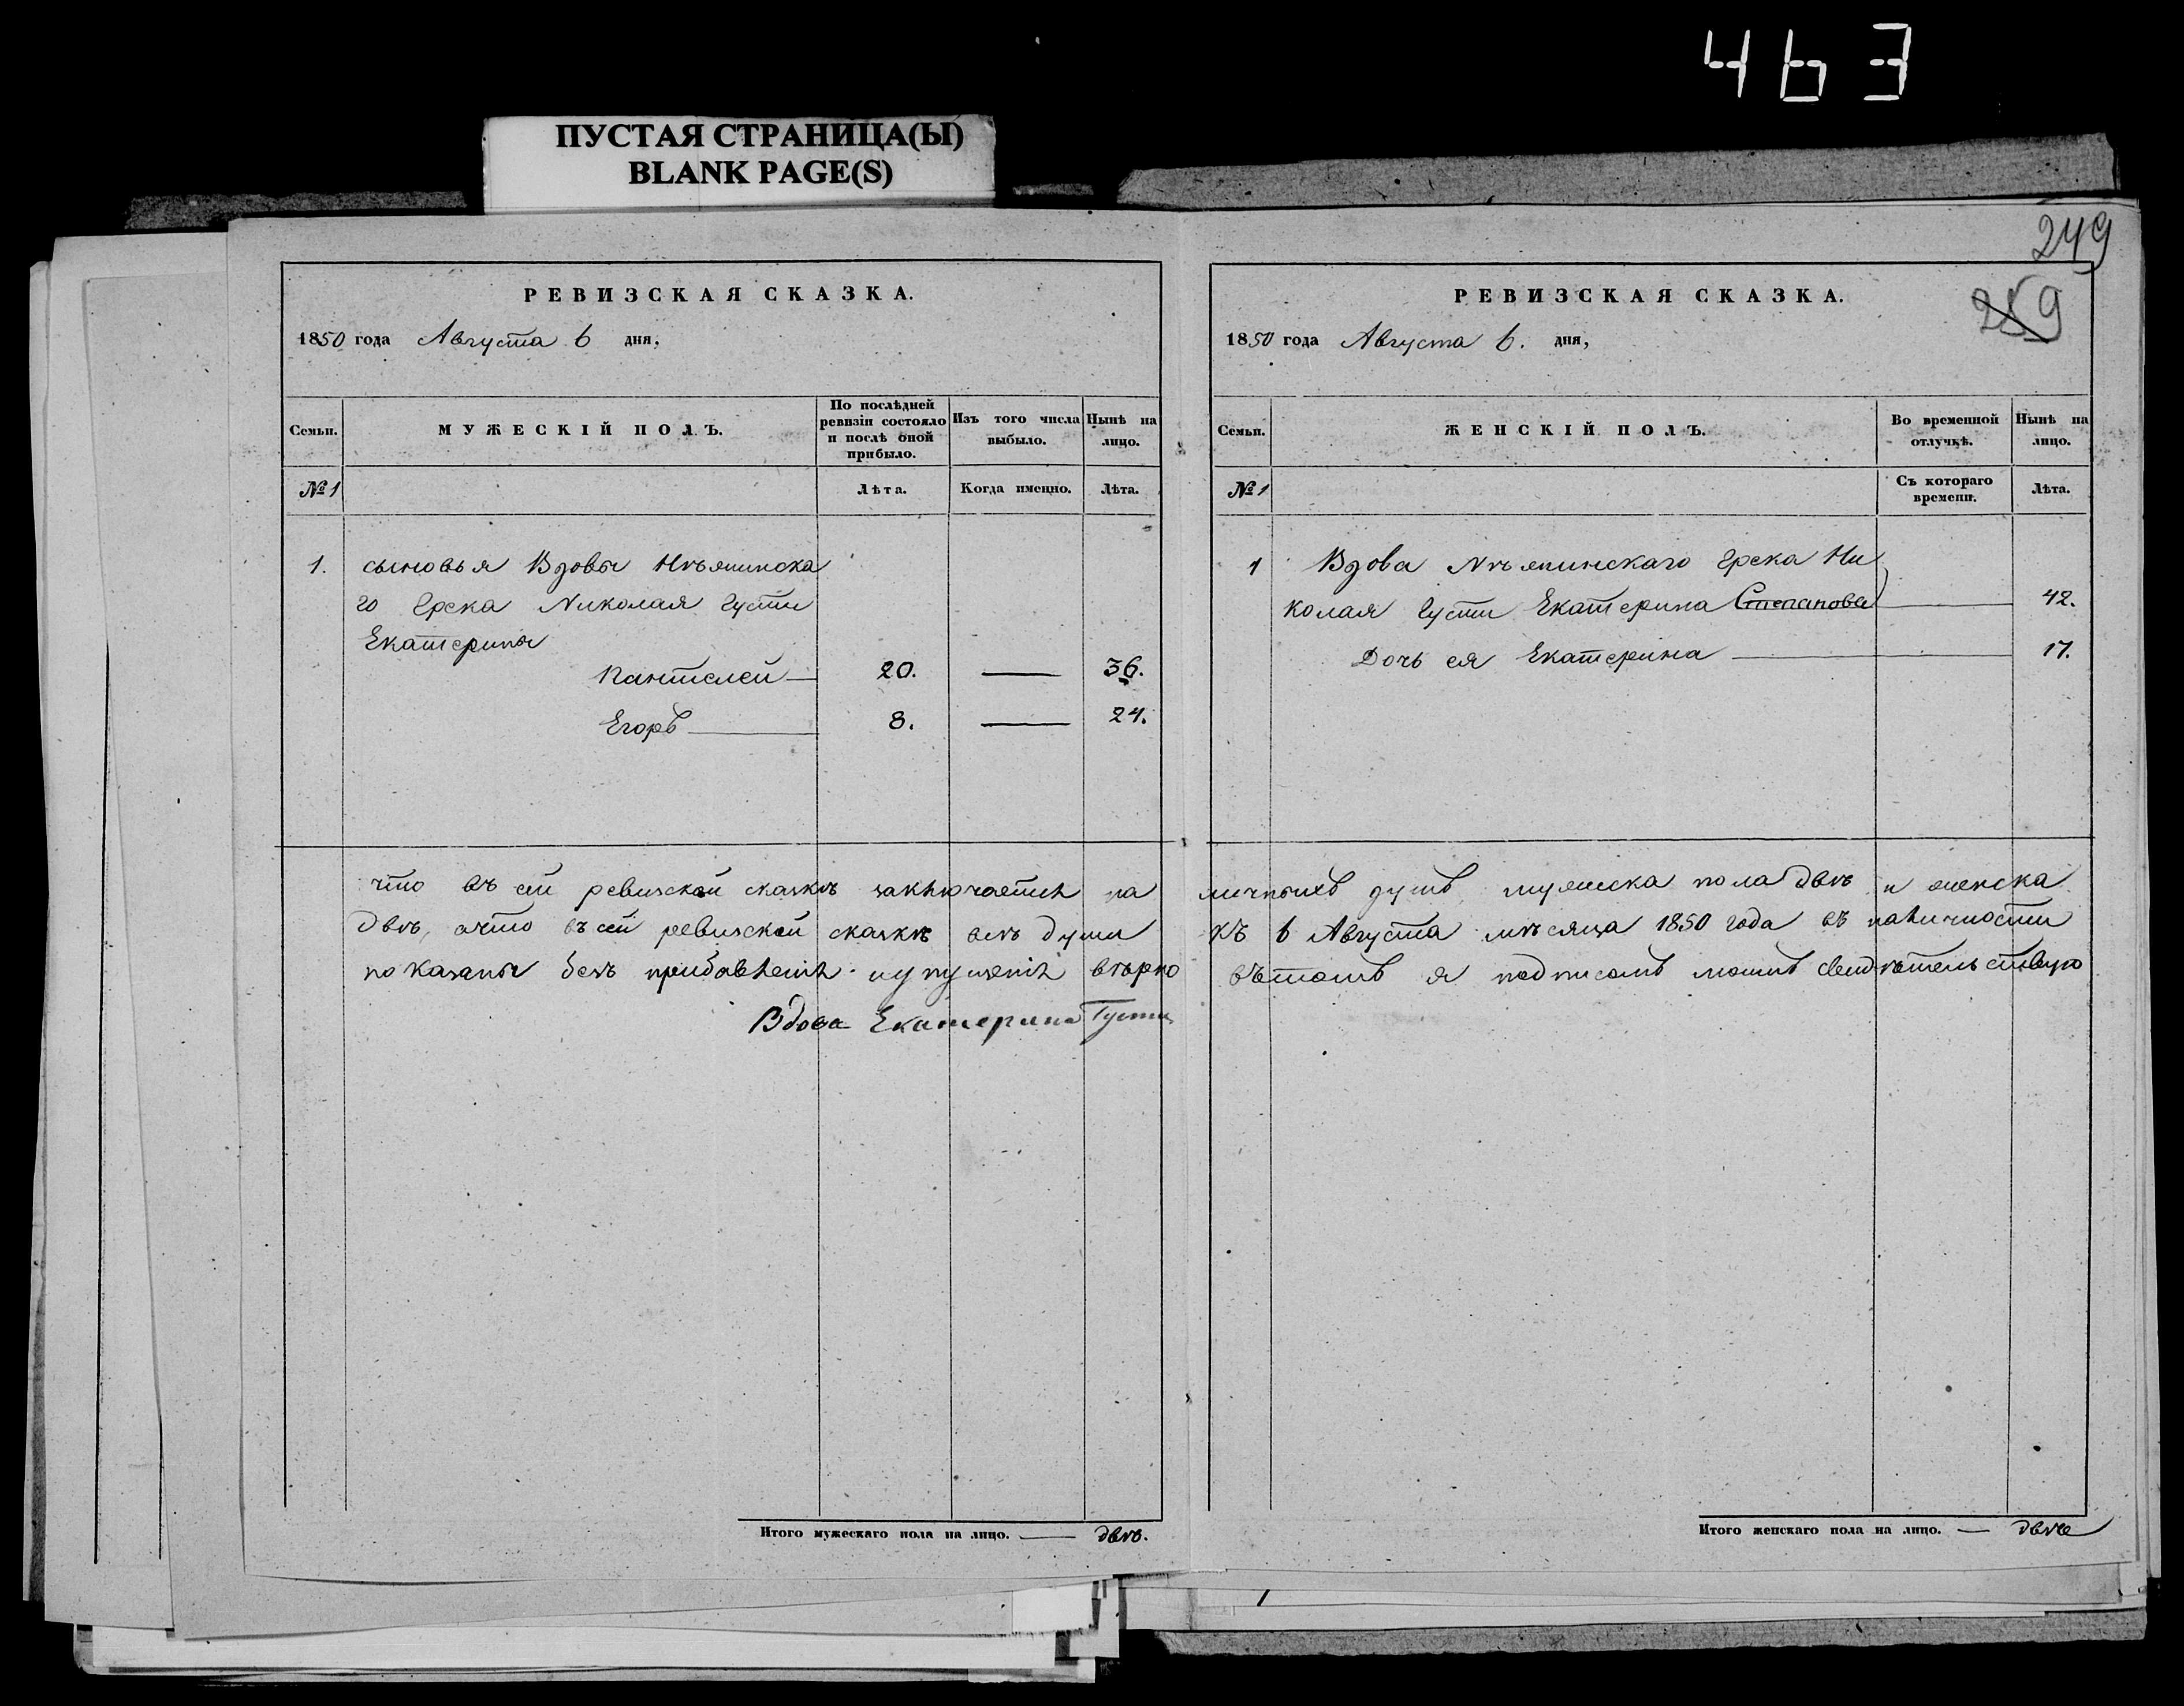 463
ПУСТАЯ СТРАНИЦА(Ы)
BLANK PAGE(S)
249
259
РЕВИЗСКАЯ СКАЗКА.
1850 года Августа 6 дня,
Семьи. МУЖЕСКІЙ ПОЛЪ. По послѣдней ревизіи состояло и послѣ оной прибыло. Изъ того числа выбыло. Нынѣ на лицо.
№ 1 Лѣта. Когда именно. Лѣта.
1. сыновья Вдовы Нѣжинска
го Грека Николая Густи
Екатерины
Пантелей 20. — 36.
Егоръ 8. — 24.
что въ сей ревизской сказкѣ заключается на
двѣ, а что въ сей ревизской сказкѣ всѣ души
показаны безъ прибавленія и упущенія вѣрно
Вдова Екатерина Густи
Итого мужескаго пола на лицо. — двѣ.
РЕВИЗСКАЯ СКАЗКА.
1850 года Августа 6. дня,
Семьи. ЖЕНСКІЙ ПОЛЪ. Во временной отлучкѣ. Нынѣ на лицо.
№ 1 Съ котораго времени. Лѣта.
1 Вдова Нѣжинскаго Грека Ни
колая Густи Екатерина Степанова 42.
Дочь ея Екатерина 17.
личныхъ душъ, мужеска пола двѣ и женска
къ 6 Августа мѣсяца 1850 года въ наличности
вътомъ я подписомъ моимъ свидѣтельствую
Итого женскаго пола на лицо. — двѣ